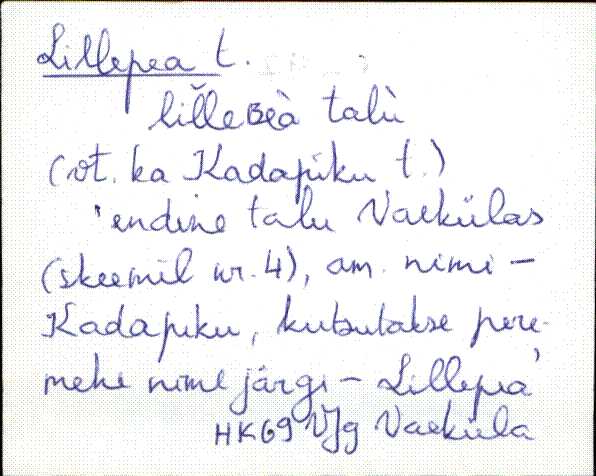 Lillepea t.
lĭlleʙèà talù
(vt. ka Kadapiku t.)
endine talu Vaekülas
(skeemil nr. 4), am. nimi –
Kadapiku, kutsutakse pere-
mehe nime järgi – Lillepea
HK69 VJg Vaeküla